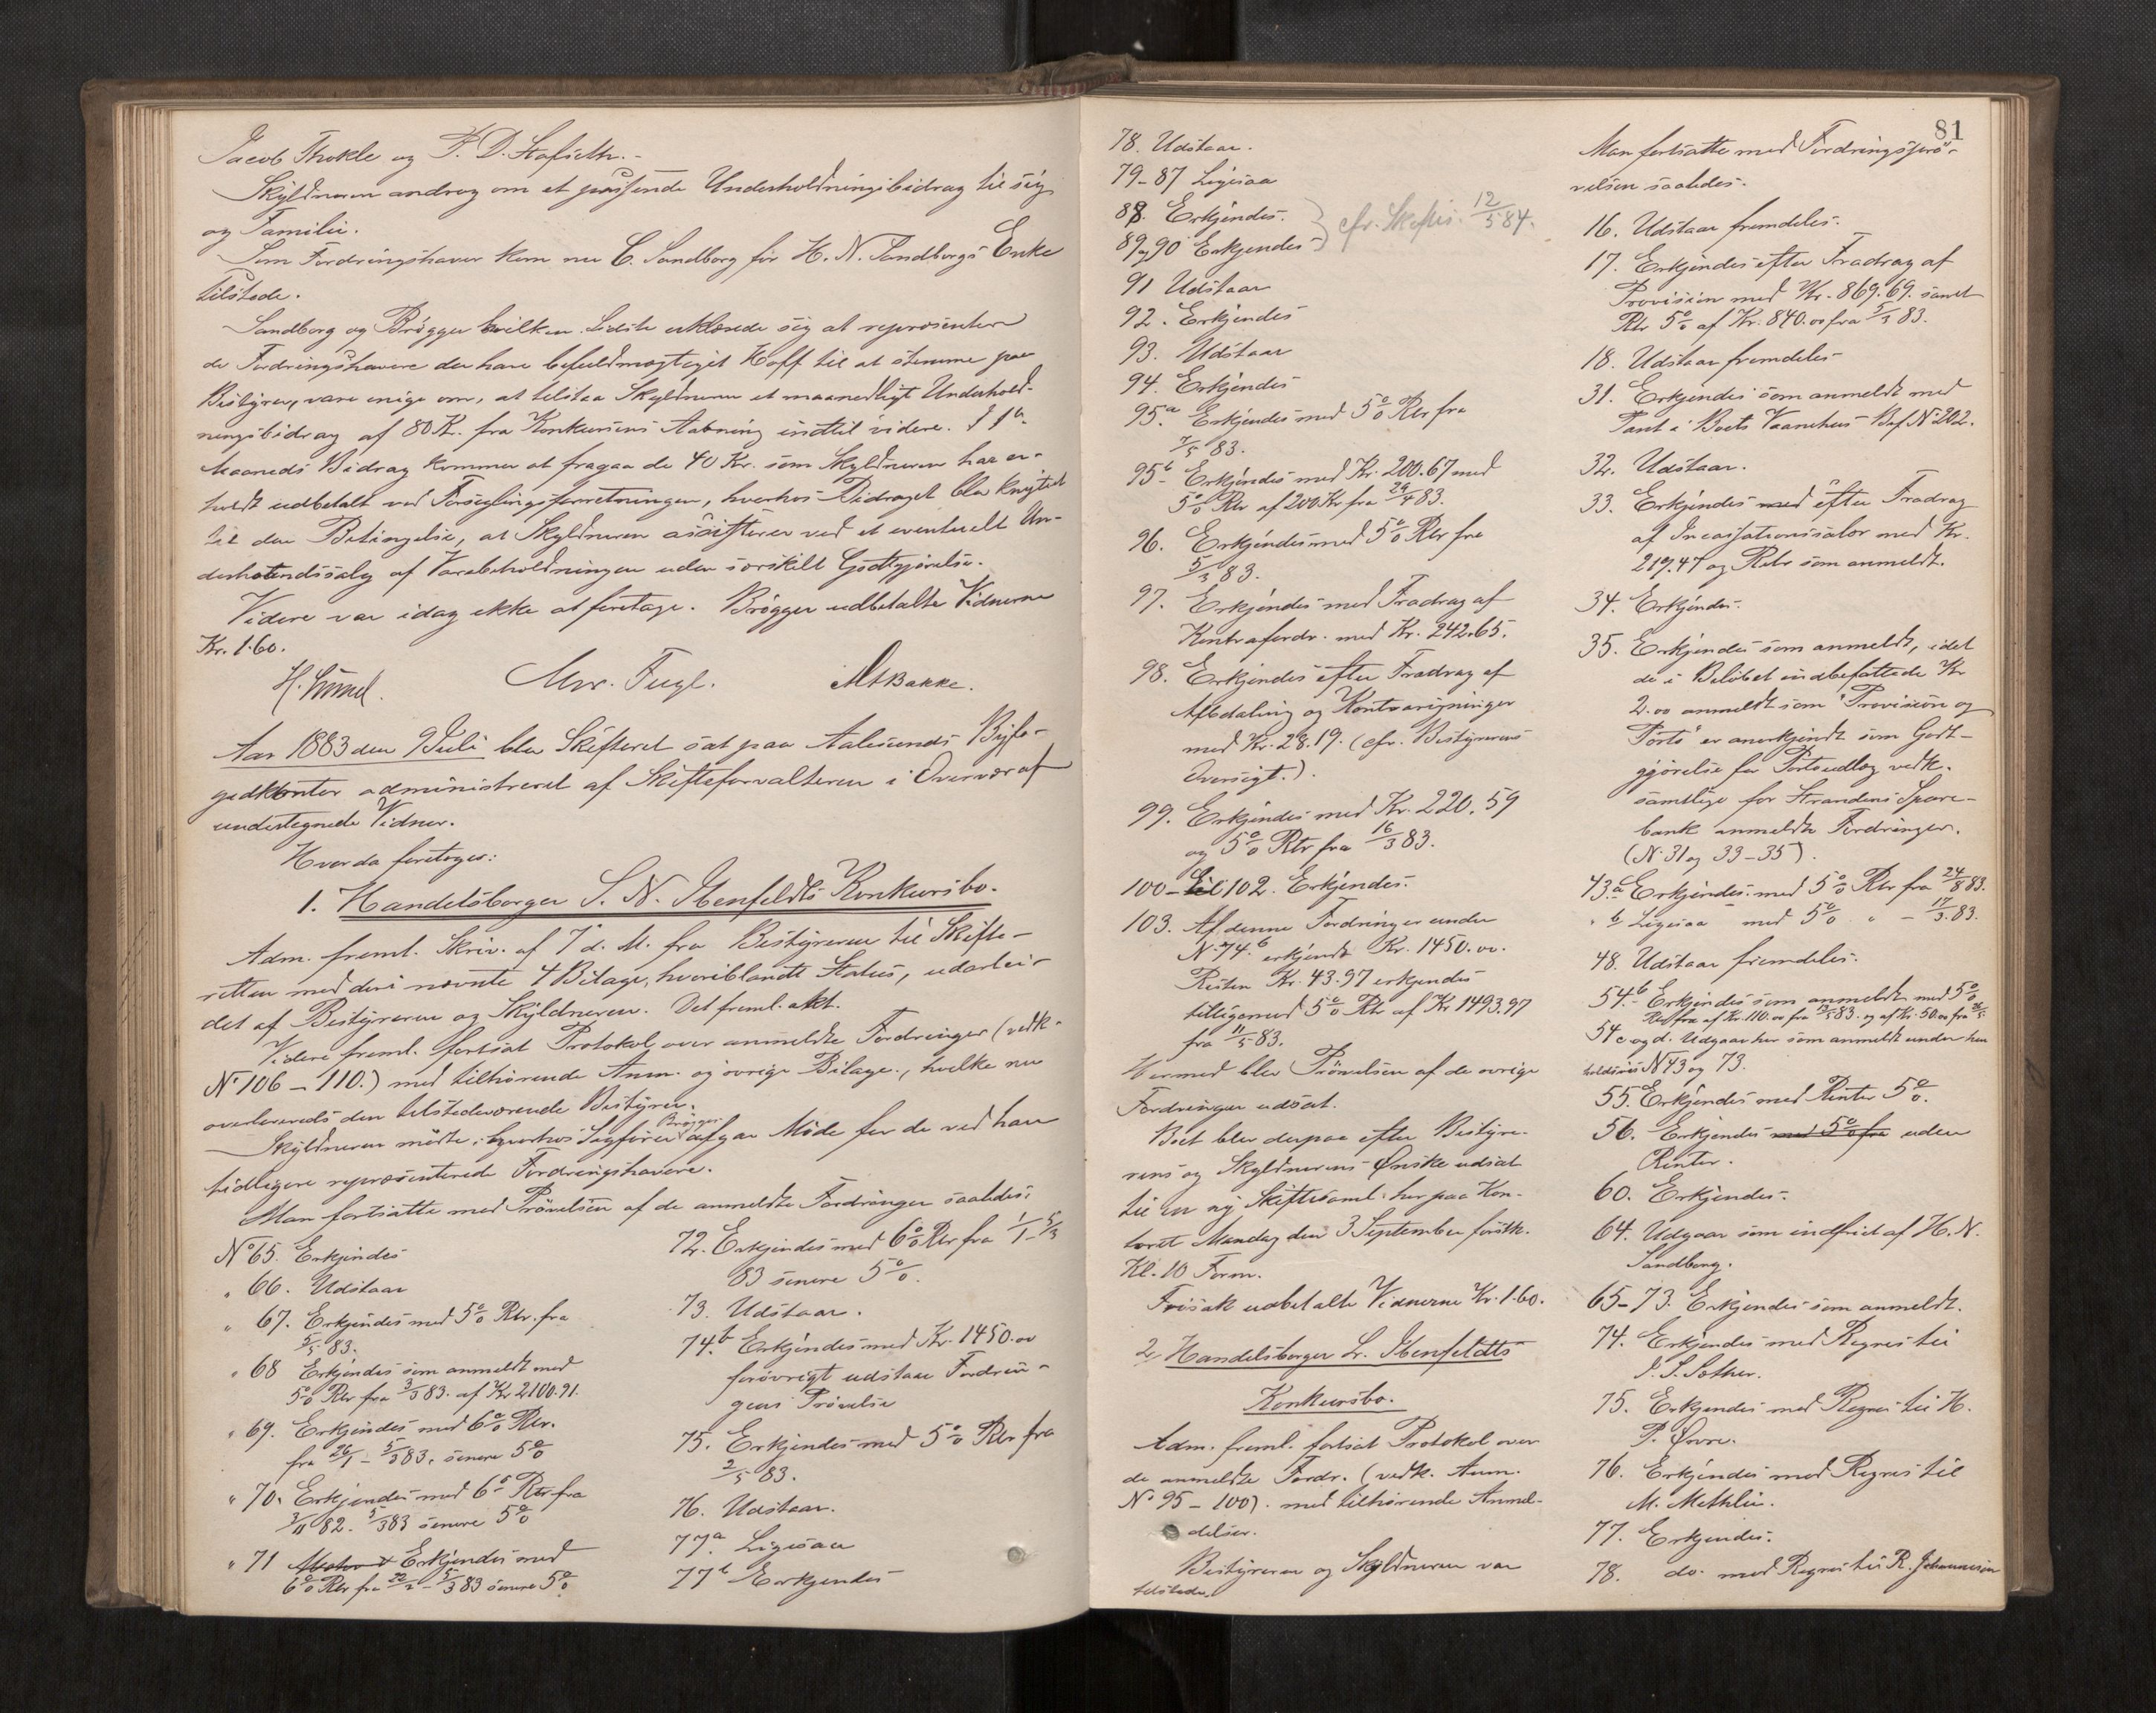 Jacob Thokle og P. D. Stafseth.-
Skyldneren androg om et passende Underholdningsbidrag til sig
og Familie.
Som Fordringshaver kom nu C. Sandborg for H. N. Sandborgs Enke
tilstede.
Sandborg og Brøgger hvilken Sidste erklærede sig at repræsentere
de Fordringshavere der have befuldmægtiget Hoff til at stemme paa
Bestyrer, vare enige om, at tilstaa Skyldneren et maanedligt Underhold-
ningsbidrag af 80 Kr. fra Konkursens Aabning indtil videre. I 1ste
Maaneds Bidrag kommer at fragaa de 40 Kr. som Skyldneren har er-
holdt udbetalt ved Forseglingsforretningen, hverhos Bidraget blev knyttet
til den Betingelse, at Skyldneren assisterer ved et eventuelt Un-
derhaandssalg af Varebeholdningen uden særskilt Godtgjørelse.
Videre var idag ikke at foretage. Brøgger udbetalte Vidnerne
Kr. 1.60.
Mor. Fugl. Bakke.
Aar 1883 den 9 Juli blev Skifteret sat paa Aalesunds Byfo-
gedkontor administreret af Skifteforvalteren i Overvær af
undertegnede Vidner.
Hvorda foretoges:
1. Handelsborger S. N. Ibenfeldts Konkursbo.
Adm. freml. Skriv. af 7 d. M. fra Bestyreren til Skifte-
retten med deri nævnte 4 Bilage, hvoriblandt Status, udarbei-
det af Bestyreren og Skyldneren. Det freml. akt.
Videre freml. fortsat Protokol over anmeldte Fordringer (vedk.
No 106 - 110.) med tilhørende Anm. og øvrige Bilage, hvilke nu
overleveredes den tilstedeværende Bestyrer.
Skyldneren mødte, hverhos Sagfører Brøgger afgav Møde for de ved ham
tidligere repræsenterede Fordringshavere.
Man fortsatte med Prøvelsen af de anmeldte Fordringer saaledes:
No 65. Erkjendes
" 66. Udstaar
" 67. Erkjendes med 5% Rtr. fra
5/5 83.
" 68 Erkjendes som anmeldt med
5% Rtr fra 3/5 83. af Kr 2100.91.
" 69. Erkjendes med 6% Rtr.
fra 26/1 - 5/3 83. senere 5%
" 70. Erkjendes med 6% Rtr fra
3/11 82. 5/3 83 senere 5%
" 71 Erkjendes med
6% Rtr fra 22/2 - 5/3 83 senere 5%
72. Erkjendes med 6% Rtr fra 1/1 - 5/3
83 senere 5%.
73. Udstaar.
74.b Erkjendes med Kr. 1450.00
forøvrigt udstaar Fordrin-
gens Prøvelse
75. Erkjendes med 5% Rtr fra
2/5 83.
76. Udstaar.
77a. Ligesaa
77b Erkjendes
81
78. Udstaar.
79-87 Ligesaa
88. Erkjendes.
89 og 90 Erkjendes } cfr. Skiftes. 12/5 84.
91 Udstaar
92. Erkjendes
93. Udstaar
94. Erkjendes
95a. Erkjendes med 5% Rtr fra
7/5 83.
95b- Erkjendes med Kr. 200.67 med
5% Rtr af 200 Kr fra 29/4 83.
96. Erkjendes med 5% Rtr fra
5/3 83.
97. Erkjendes med Fradrag af
Kontrafordr. med Kr. 242.65.
98. Erkjendes efter Fradrag af
Afbetaling og Kontraregninger
med Kr. 28.19. (cfr. Bestyrerens
Oversigt.).
99. Erkjendes med Kr. 220.59
og 5% Rtr fra 16/3 83.
100 - til 102. Erkjendes.
103. Af denne Fordring er under
No 74.b erkjendt Kr. 1450.00.
Resten Kr. 43.97 erkjendes
tilligemed 5% Rtr af Kr 1493.97
fra 11/5 83.
Hermed blev Prøvelsen af de øvrige
Fordringer udsat.
Boet blev derpaa efter Bestyre-
rens og Skyldnerens Ønske udsat
til en ny Skiftesaml. her paa Kon-
toret Mandag den 3 September førstk.
Kl. 10 Form.
Frisak udbetalte Vidnerne Kr. 1.60.
2, Handelsborger L. Ibenfeldts
Konkursbo.
Adm. freml. fortsat Protokol over
de anmeldte Fordr. (vedk. Anm.
No 95 - 100). med tilhørende Anmel-
delser.
Bestyreren og Skyldneren var
tilstede.
Man fortsatte med Fordringsprø-
velsen saaledes.
16. Udstaar fremdeles.
17. Erkjendes efter Fradrag af
Provision med Kr. 869.69. samt
Rtr 5% af Kr. 840.00 fra 5/3 83.
18. Udstaar fremdeles
31. Erkjendes som anmeldt med
Pant i Boets Vaanehus Bef No 202.
32. Udstaar.
33. Erkjendes med efter Fradrag
af Incassationssalær med Kr.
219.47 og Rtr som anmeldt.
34. Erkjendes.
35. Erkjendes som anmeldt, idet
de i Beløbet indbefattede Kr
2.00 anmeldt som "Provision og
Porto" er anerkjendt som Godt-
gjørelse for Portoudlæg vedk.
samtlige for Strandens Spare-
bank anmeldte Fordringer.
(No 31 og 33-35).
43.a Erkjendes med 5% Rtr fra 24/8 83.
" b Ligesaa med 5% " - 17/3 83.
48. Udstaar fremdeles.
54.b Erkjendes som anmeldt med 5%
Rtr fra af Kr. 110.00 fra 13/5 83. og af Kr. 50.00 fra 26/5.
54 c og d. Udgaar her som anmeldt under hen
holdsvis No 43 og 73.
55. Erkjendes med Renter 5%.
56. Erkjendes med 5% fra uden
Renter.
60. Erkjendes.
64. Udgaar som indfriet af H. N.
Sandborg.
65-73. Erkjendes som anmeldt.
74. Erkjendes med Regres til
P. S. Sother.
75. Erkjendes med Regres til H.
P. Øvre.
76. Erkjendes med Regres til
M. Methlie.
77. Erkjendes.
78. do. med Regres til R. Johannesen